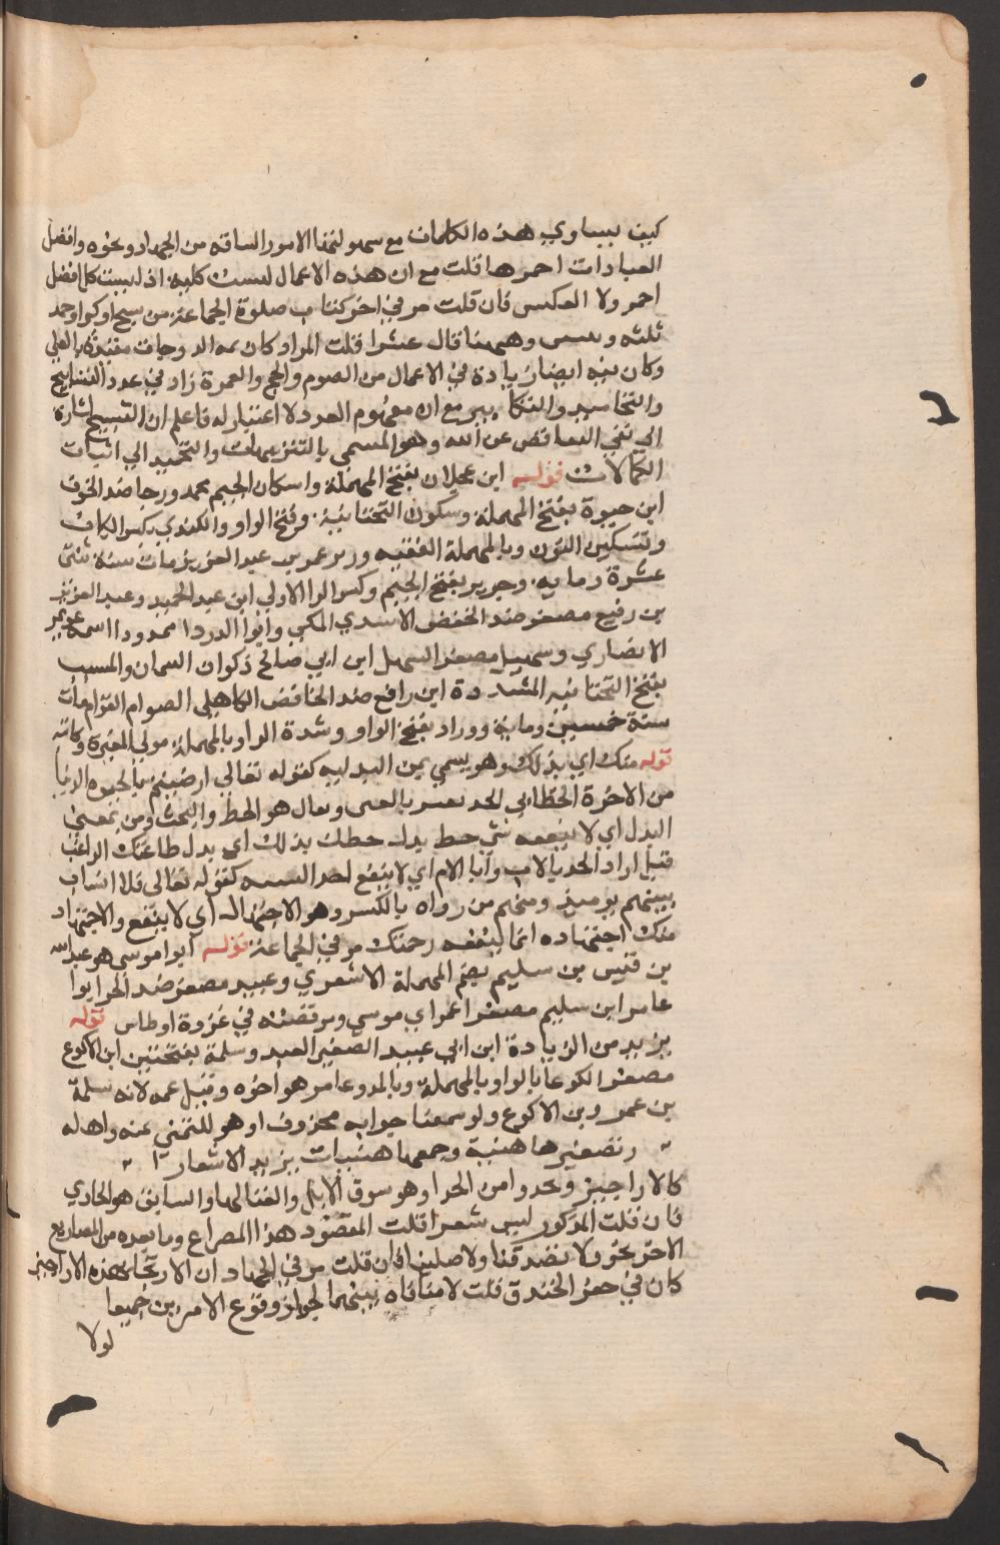 كيف يساوي هذه الكلمات مع سهولتها الامور الشاقه من الجهاد ونحوه وافضل
العبادات احمزها قلت مع ان هذه الاعمال ليست كليه اذ ليست كل افضل
احمز ولا العكس فان قلت مر في اخر كتاب صلوة الجماعة من سبح او كبر او حمد
ثلثه و وههنا قال عشرا قلت المراد كان ثمه الدرجات مقيدة بالعلي
وكان فيه ايضا زيادة في الاعمال من الصوم والحج والعمرة زاد في عدد التسابيح
والتحاميد والتكابير مع ان مفهوم العدد لا اعتبار له فاعلم ان التسبيح اشارة
الى نفي النقائص عن الله وهو المسمى بالتنزيهات والتحميد الي اثبات
الكمالات قوله ابن عجلان بفتح المهملة واسكان الجيم محمد ورجا ضد الخوف
ابن حيوة بفتح المهملة وسكون التحتانية وفتح الواو والكندي بكسر الكاف
وتسكين النون وبالمهملة الفقيه وزير عمر بن عبد العزيز مات سنة ثنتى
عشرة وماية وجرير بفتح الجيم وكسر الرا الاولى ابن عبد الحميد وعبد العزيز
بن رفيع مصغر ضد الخفض الاسدي المكي وابو الدردا ممدودا اسمه عويمر
الانصاري وسهيل مصغر السهل ابن ابي صالح ذكوان السمان والمسيب
بفتح التحتانيه المشددة ابن رافع ضد الخافض الكاهلي الصوام القوام مات
سنة خمسين وماية ووراد بفتح الواو وشدة الرا وبالمهملة مولى المغيرة وكاتبه
قوله منك اي بذلك وهو يسمي بمن البدليه كقوله تعالى ارضيتم بالحيوة الدنيا
من الاخرة الخطابى الجد يفسر بالغنى ويقال هو الحظ والبخت ومن بمعنى
البدل اي لا ينفعه حظ بدل حظك بذلك اي بدل طاعتك الراغب
قيل اراد الجد ابا الاب وابا الام اي لا ينفع احدا نسبه كقوله تعالى فلا انساب
بينهم يومئذ ومنهم من رواه بالكسر وهو الاجتهاد اي لا ينفع ذا الاجتهاد
منك اجتهاده انما ينفعه رحمتك مر في الجماعة قوله ابوا موسى هو عبد الله
بن قيس بن سليم بضم المهملة الاشعري وعبيد مصغر ضد الحر ابوا
عامر ابن سليم مصغرا عم ابي موسي ومر قصته في غزوة اوطاس قوله
يزيد من الزيادة ابن ابي عبيد الصغير العبد وسلمة بفتحتين ابن الاكوع
مصغر الكوعا بالواو بالمهملة وبالمد وعامر هو اخوه وقيل عمه لانه سلمة
بن عمرو بن الاكوع ولو سمعنا جوابه محذوف او هو للتمني عنه واهل له
وتصغيرها هنية وجمعها هنيات يزيد الاشعار
كالاراجيز وتحدوا من الحدا وهو سوق الابل والغنا لها والسايق هو الحادي
فان قلت المذكور ليس شعرا قلت المقصود هذا المصراع وما بعده من المصاريع
الاخر نحو ولا تصدقنا ولا صلينا فان قلت مر في الجهاد ان الارتجاز بهذه الاراجيز
كان في حفر الخندق قلت لا منافاة بينهما لجواز وقوع الامرين جميعا
لولا